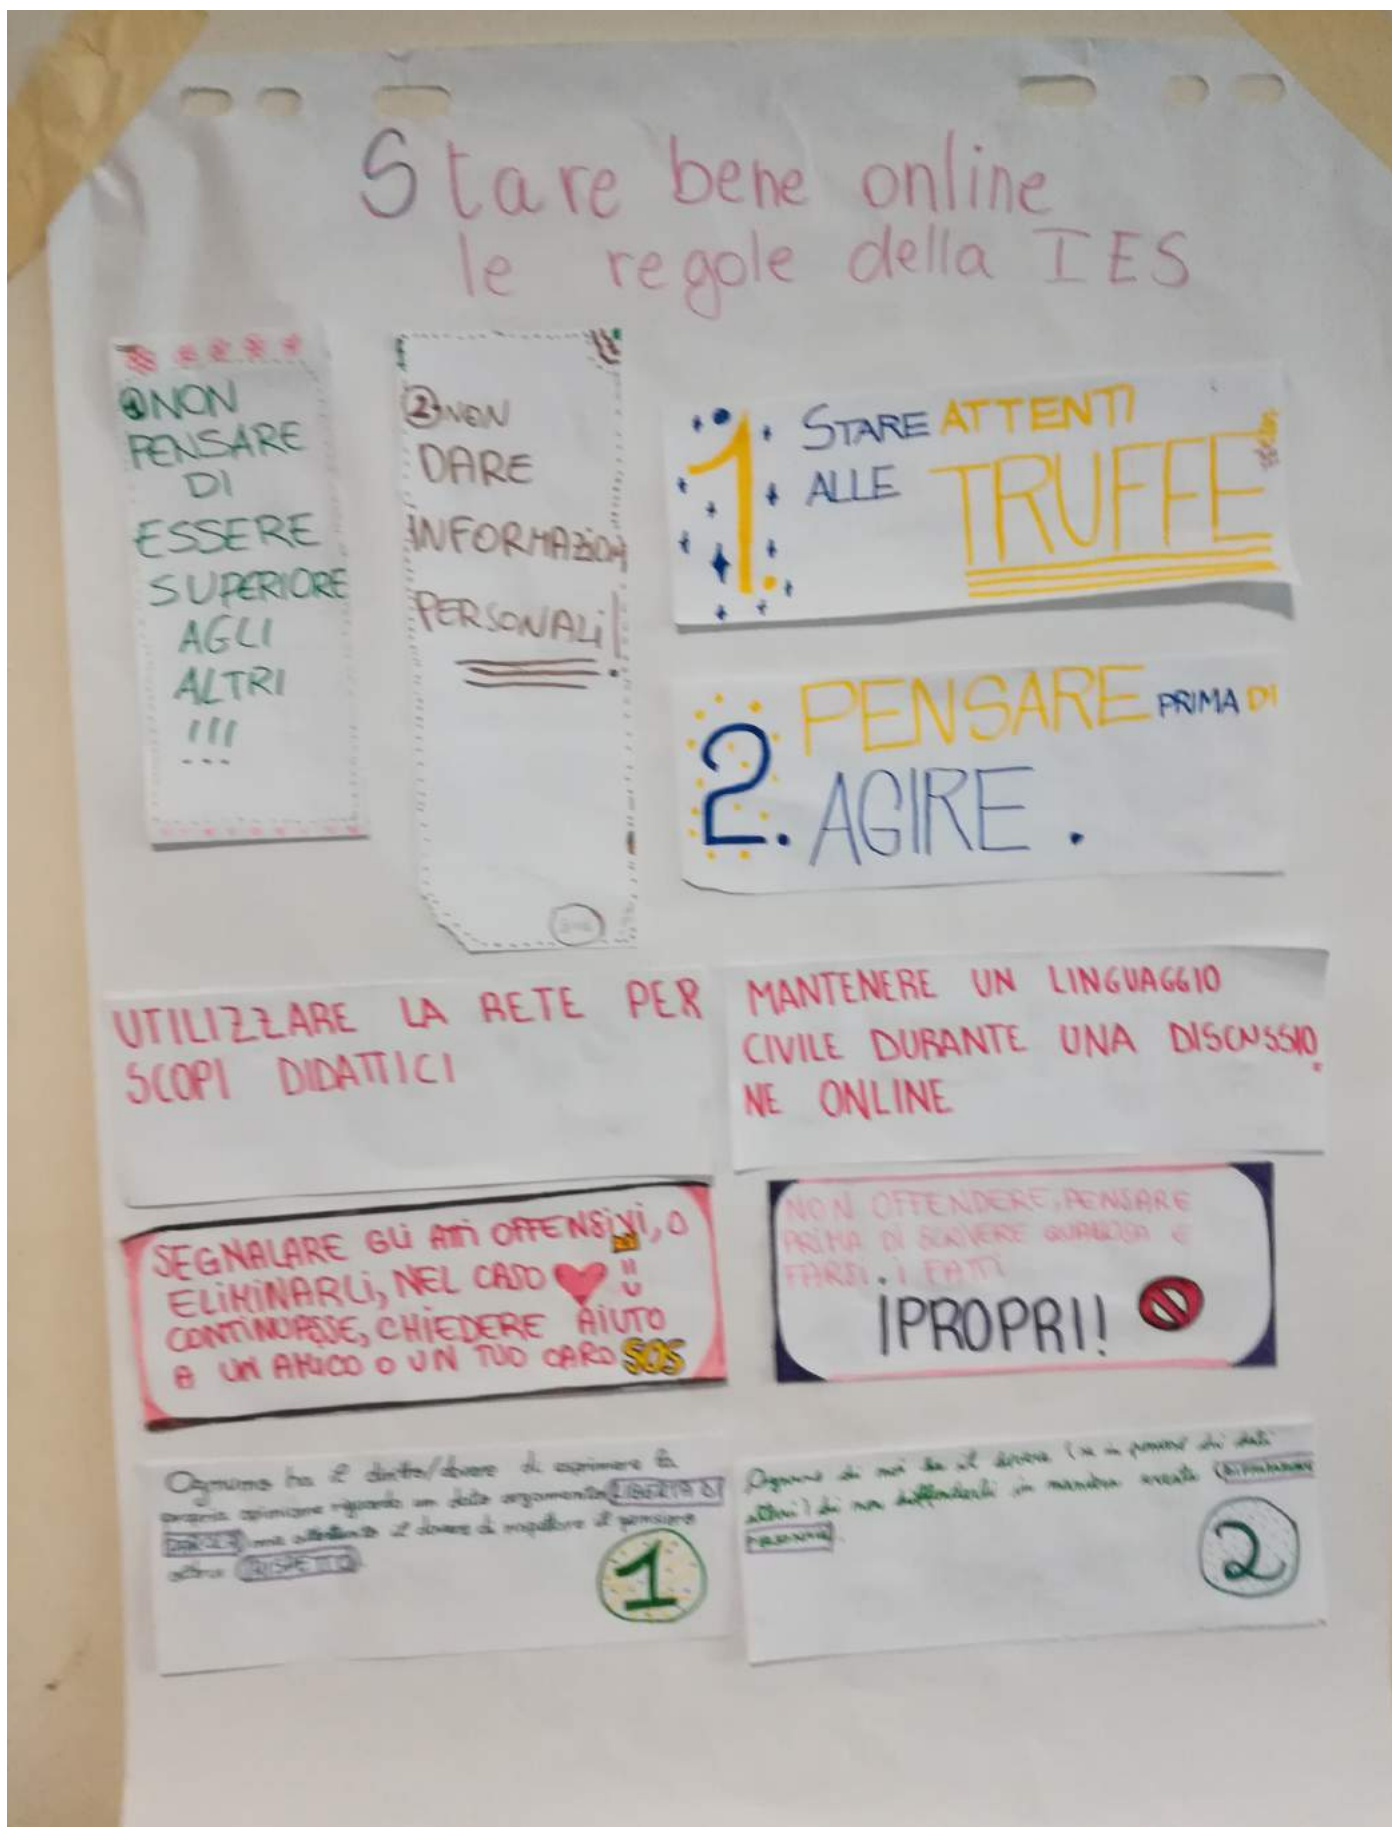 Stare bene online
le regole della IES
1 NON
PENSARE
DI
ESSERE
SUPERIORE
AGLI
ALTRI
!!!
2 NON
DARE
INFORMAZIONI
PERSONALI!
1. STARE ATTENTI
ALLE TRUFFE
2. PENSARE PRIMA DI
AGIRE.
UTILIZZARE LA RETE PER
SCOPI DIDATTICI
MANTENERE UN LINGUAGGIO
CIVILE DURANTE UNA DISCUSSIO
NE ONLINE
SEGNALARE GLI ATTI OFFENSIVI, O
ELIMINARLI, NEL CASO
CONTINUASSE, CHIEDERE AIUTO
A UN AMICO O UN TUO CARO SOS
NON OFFENDERE, PENSARE
PRIMA DI SCRIVERE QUALCOSA E
FARSI. I FATTI
PROPRI!
Ognuno ha il diritto/dovere di esprimere la
propria opinione riguardo un dato argomento LIBERTÀ DI
PAROLA ma altrettanto il dovere di rispettare il pensiero
altrui (RISPETTO).
1
Ognuno di noi ha il dovere (se in possesso di dati
altrui) di non diffonderli in maniera errata
2